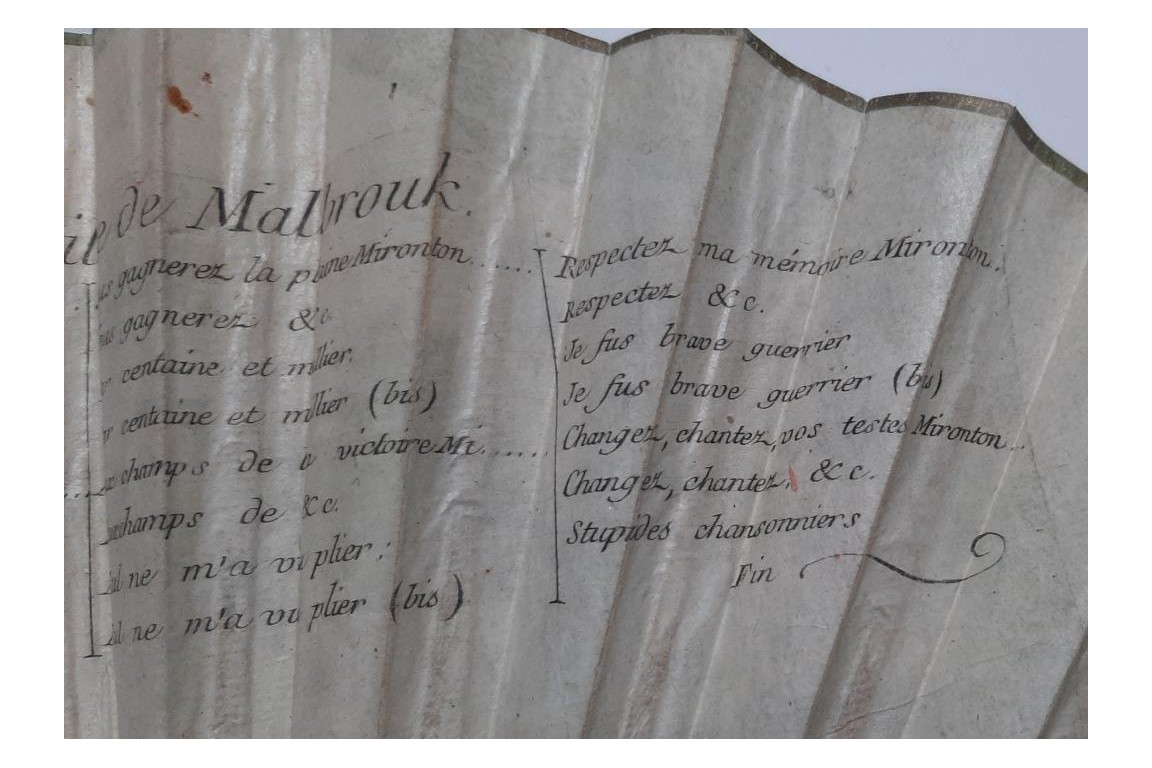 de Malbrouk.
gagnerez la plaine Mironton......
gagnerez &c.
centaine et millier.
centaine et millier (bis)
champs de victoire Mi......
champs de &c.
ne m'a vu plier :
ne m'a vu plier (bis)
Respectez ma mémoire Mironton..
Respectez &c.
Je fus brave guerrier
Je fus brave guerrier (bis)
Changez, chantez, vos testes Mironton...
Changez, chantez, &c.
Stupides chansonniers
Fin